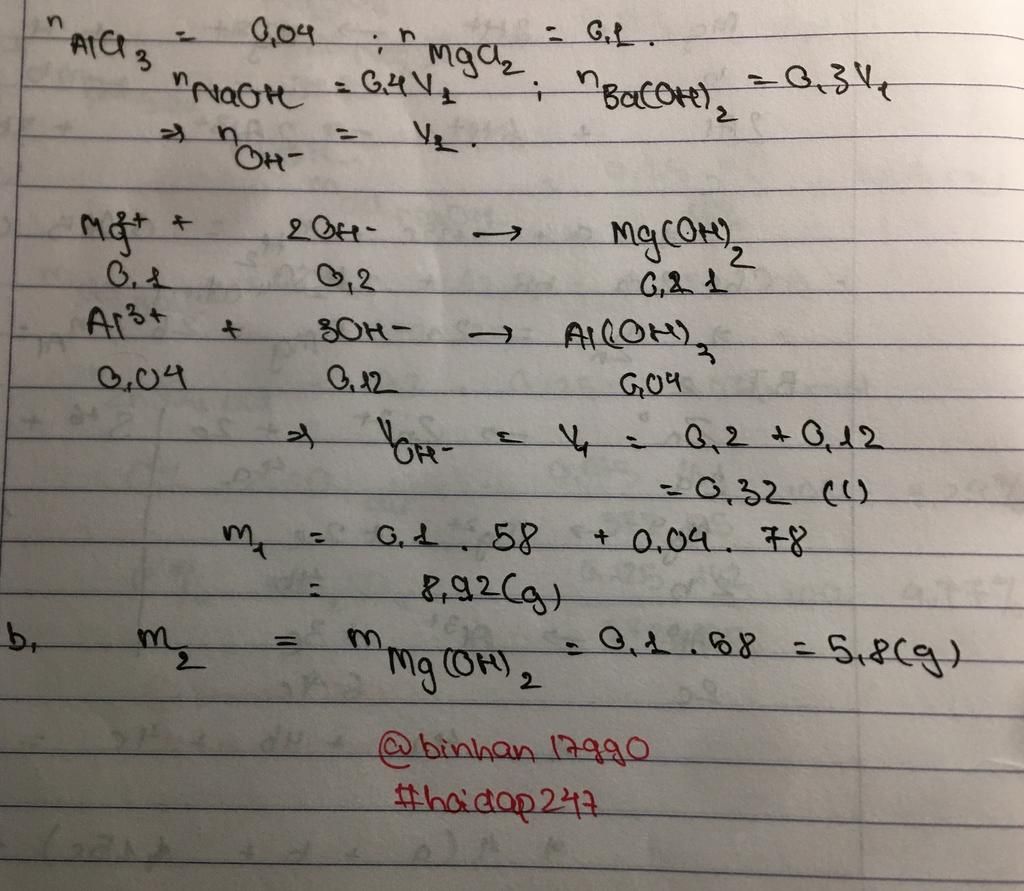 nAlCl3 = 0,04 ; nMgCl2 = 0,1.
nNaOH = 0,4V1 ; nBa(OH)2 = 0,3V1
=> nOH- = V1.
Mg2+ + 2OH- → Mg(OH)2
0,1 0,2 0,1
Al3+ + 3OH- → Al(OH)3
0,04 0,12 0,04
=> VOH- = V1 = 0,2 + 0,12
= 0,32 (l)
m1 = 0,1 . 58 + 0,04 . 78
= 8,92(g)
b, m2 = mMg(OH)2 = 0,1 . 58 = 5,8(g)
@binhan17990
#hoidap247